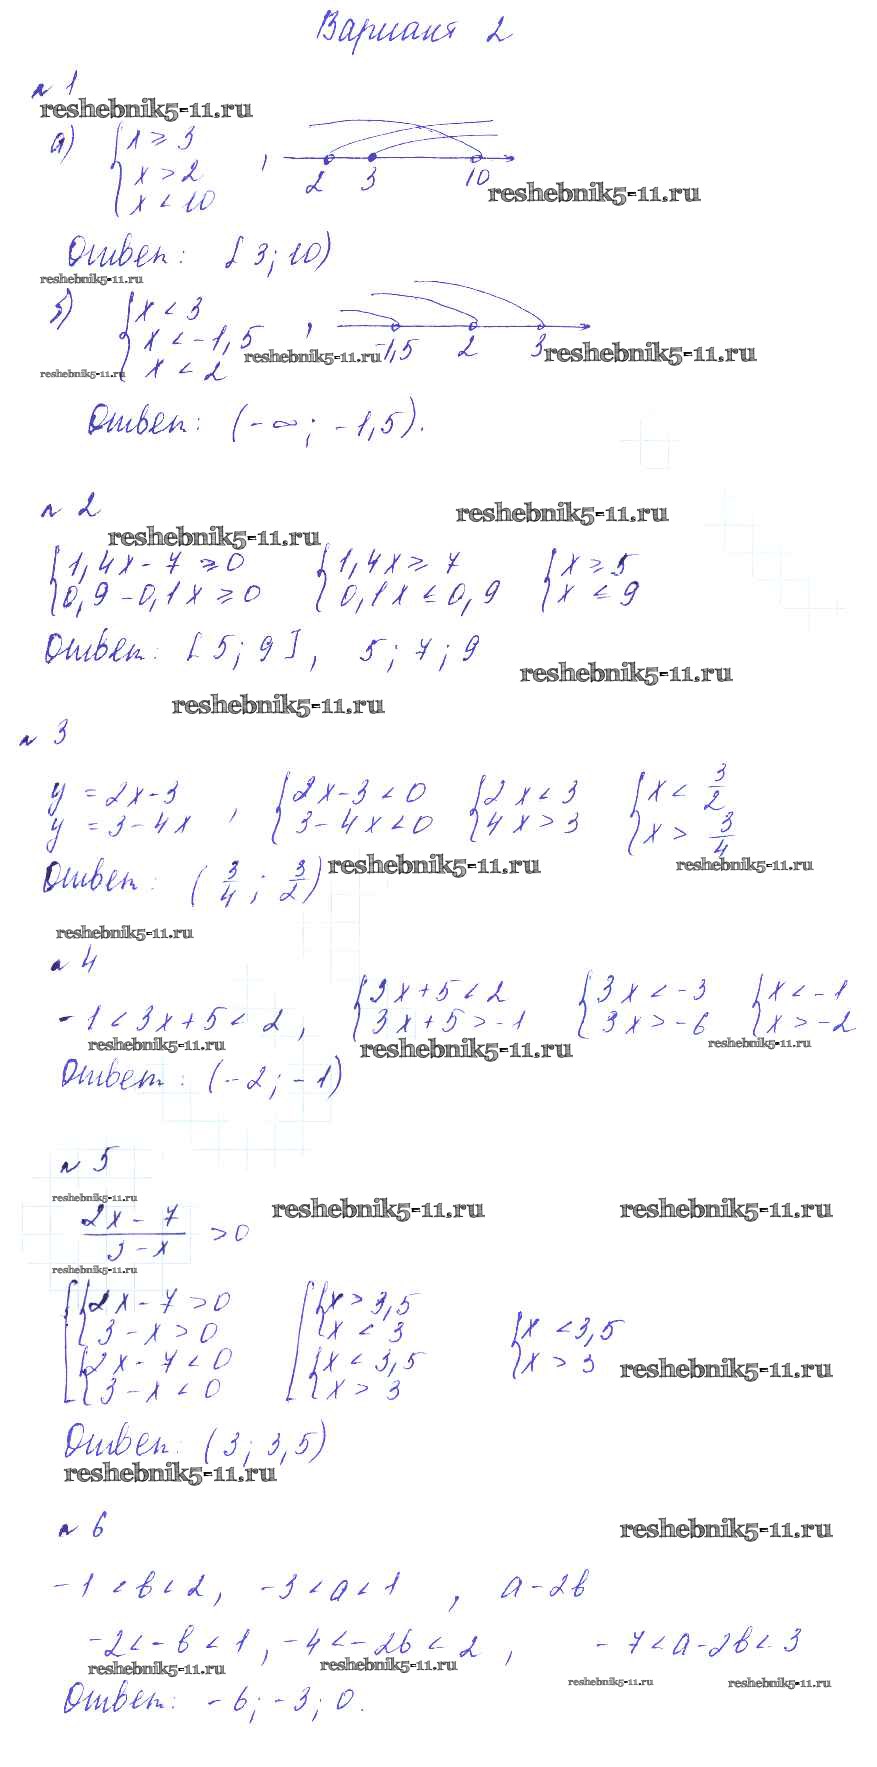 Вариант 2
№ 1
reshebnik5-11.ru
а) { x ≥ 3
x > 2
x < 10 ,
2 3 10
reshebnik5-11.ru
Ответ: [3; 10)
reshebnik5-11.ru
б) { x < 3
x < -1,5
x < 2 ,
-1,5 2 3
reshebnik5-11.ru
reshebnik5-11.ru
reshebnik5-11.ru
Ответ: (-∞; -1,5).
№ 2
reshebnik5-11.ru
reshebnik5-11.ru
{ 1,4x - 7 ≥ 0 { 1,4x ≥ 7 { x ≥ 5
0,9 - 0,1x ≥ 0 0,1x ≤ 0,9 x ≤ 9
Ответ: [5; 9], 5; 7; 9
reshebnik5-11.ru
reshebnik5-11.ru
№ 3
y = 2x-3 { 2x-3 < 0 { 2x < 3 { x < 3/2
y = 3-4x , 3-4x < 0 4x > 3 x > 3/4
reshebnik5-11.ru
reshebnik5-11.ru
Ответ: (3/4; 3/2)
reshebnik5-11.ru
№ 4
{ 3x+5 < 2 { 3x < -3 { x < -1
-1 < 3x+5 < 2, 3x+5 > -1 3x > -6 x > -2
reshebnik5-11.ru
reshebnik5-11.ru
reshebnik5-11.ru
Ответ: (-2; -1)
№ 5
reshebnik5-11.ru
reshebnik5-11.ru
reshebnik5-11.ru
2x - 7
3 - x > 0
reshebnik5-11.ru
[ { 2x - 7 > 0 [ { x > 3,5
3 - x > 0 x < 3 { x < 3,5
{ 2x - 7 < 0 { x < 3,5 x > 3
3 - x < 0 x > 3
reshebnik5-11.ru
Ответ: (3; 3,5)
reshebnik5-11.ru
№ 6
reshebnik5-11.ru
-1 < b < 2, -3 < a < 1 , a - 2b
-2 < -b < 1, -4 < -2b < 2 , -7 < a-2b < 3
reshebnik5-11.ru
reshebnik5-11.ru
reshebnik5-11.ru
reshebnik5-11.ru
Ответ: -6; -3; 0.